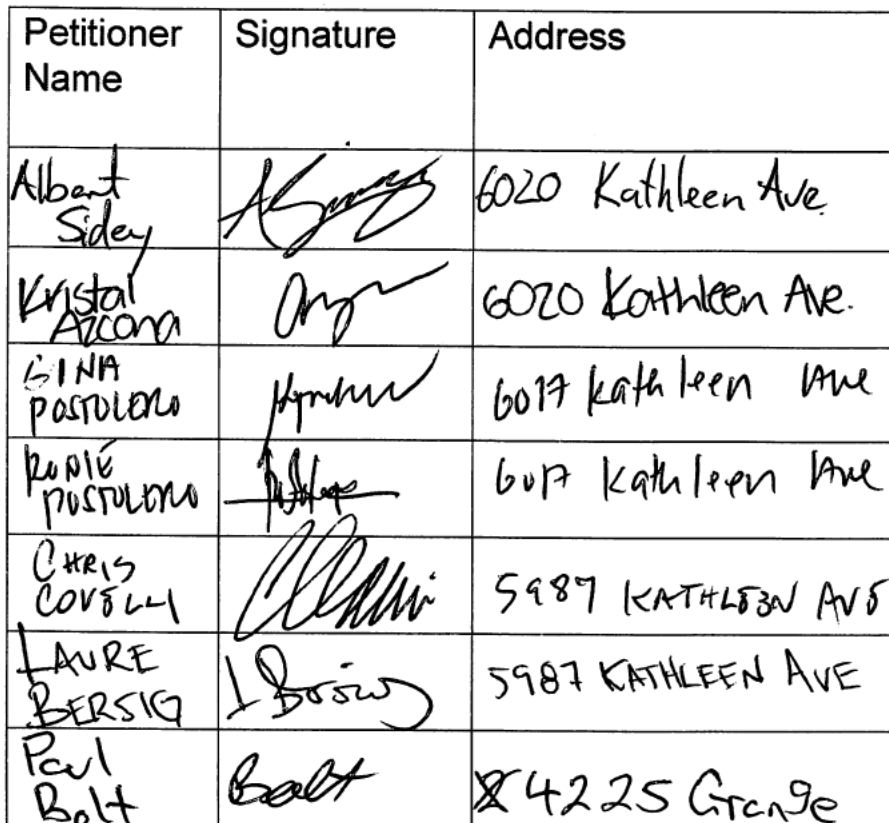 Petitioner Name Signature Address
Albert Sidey 6020 Kathleen Ave.
Kristal Azcona 6020 Kathleen Ave.
GINA POSTOLERO 6017 Kathleen Ave
POSTOLERO 6017 Kathleen Ave
CHRIS COVELLI 5987 KATHLEEN AVE
LAURE BERSIG 5987 KATHLEEN AVE
Paul Bolt Bolt 4225 Grange